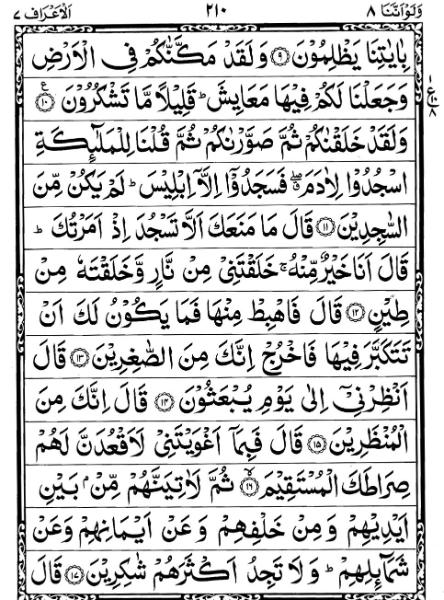 وَلَوْاَنَّنَا ٨ ٢١٠ اَلْاَعْرَاف ٧
بِاٰيٰتِنَا يَظْلِمُوْنَ ۝٩ وَلَقَدْ مَكَّنّٰكُمْ فِى الْاَرْضِ
وَجَعَلْنَا لَكُمْ فِيْهَا مَعَايِشَ ؕ قَلِيْلًا مَّا تَشْكُرُوْنَ ۝١٠ ع
وَلَقَدْ خَلَقْنٰكُمْ ثُمَّ صَوَّرْنٰكُمْ ثُمَّ قُلْنَا لِلْمَلٰٓئِكَةِ
اسْجُدُوْا لِاٰدَمَ ۖ فَسَجَدُوْۤا اِلَّاۤ اِبْلِيْسَ ؕ لَمْ يَكُنْ مِّنَ
السّٰجِدِيْنَ ۝١١ قَالَ مَا مَنَعَكَ اَلَّا تَسْجُدَ اِذْ اَمَرْتُكَ ؕ
قَالَ اَنَا خَيْرٌ مِّنْهُ ۚ خَلَقْتَنِيْ مِنْ نَّارٍ وَّخَلَقْتَهٗ مِنْ
طِيْنٍ ۝١٢ قَالَ فَاهْبِطْ مِنْهَا فَمَا يَكُوْنُ لَكَ اَنْ
تَتَكَبَّرَ فِيْهَا فَاخْرُجْ اِنَّكَ مِنَ الصّٰغِرِيْنَ ۝١٣ قَالَ
اَنْظِرْنِيْۤ اِلٰى يَوْمِ يُبْعَثُوْنَ ۝١٤ قَالَ اِنَّكَ مِنَ
الْمُنْظَرِيْنَ ۝١٥ قَالَ فَبِمَاۤ اَغْوَيْتَنِيْ لَاَقْعُدَنَّ لَهُمْ
صِرَاطَكَ الْمُسْتَقِيْمَ ۝١٦ ثُمَّ لَاٰتِيَنَّهُمْ مِّنْۢ بَيْنِ
اَيْدِيْهِمْ وَمِنْ خَلْفِهِمْ وَعَنْ اَيْمَانِهِمْ وَعَنْ
شَمَآئِلِهِمْ ؕ وَلَا تَجِدُ اَكْثَرَهُمْ شٰكِرِيْنَ ۝١٧ قَالَ